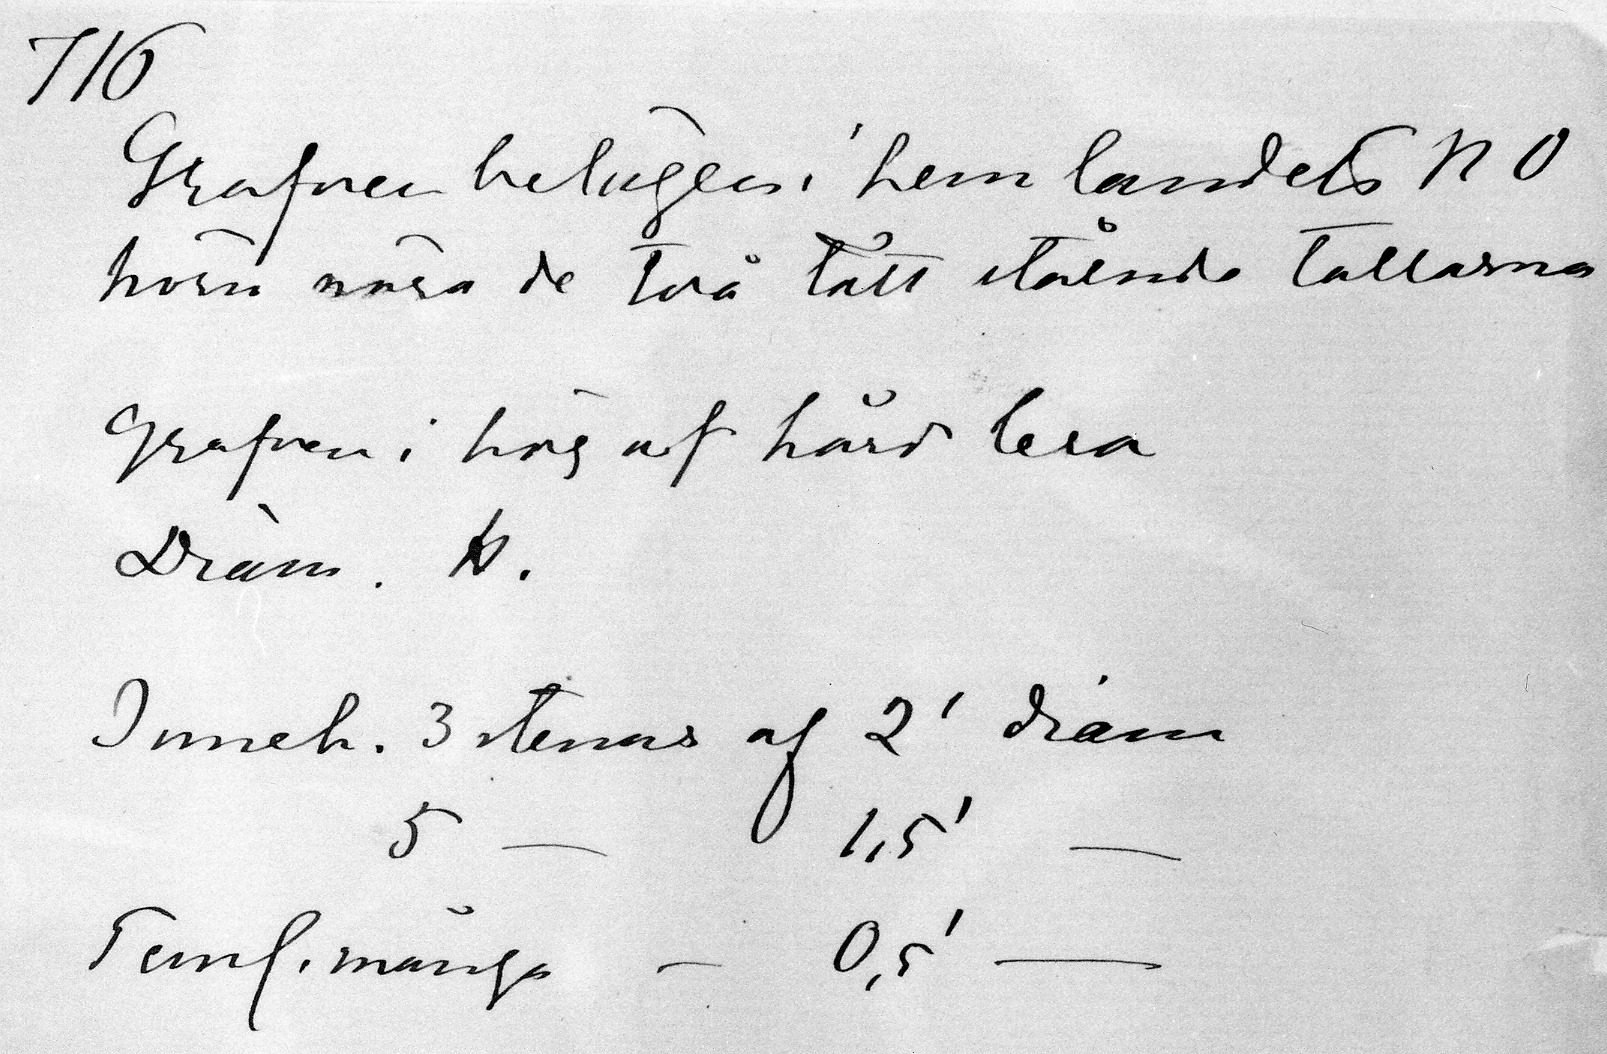 716
Grafven belägen i hemlandets NO
hörn nära de två tätt stående tallarna
Grafven i hög af hård lera
Diam.
Inneh. 3 stenar af 2' diam
5 — 1,5' —
Teml. många — 0,5' —